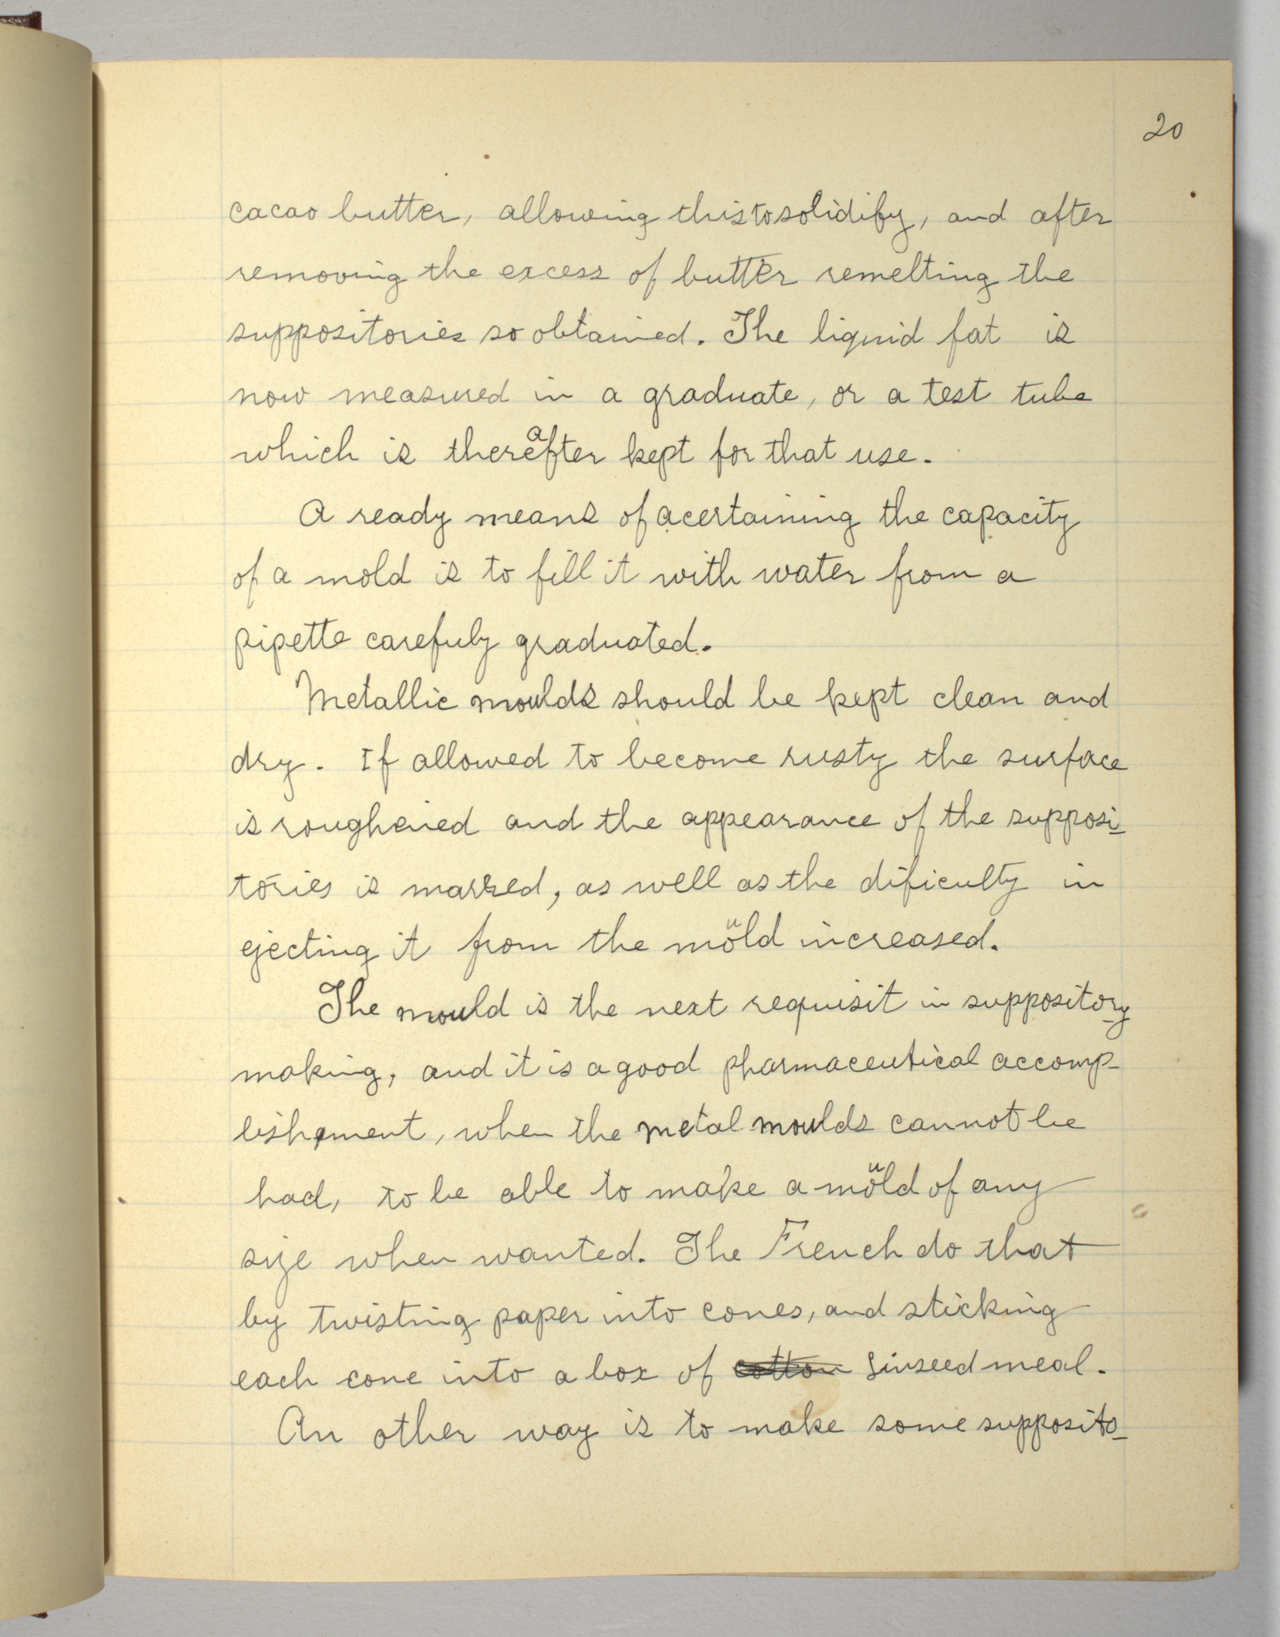 20
cacao butter, allowing this to solidify, and after
removing the excess of butter remelting the
suppositories so obtained. The liquid fat is
now measured in a graduate, or a test tube
which is thereafter kept for that use.
A ready means of acertaining the capacity
of a mold is to fill it with water from a
pipette carefuly graduated.
Metallic moulds should be kept clean and
dry. If allowed to become rusty the surface
is roughened and the appearance of the supposi-
tories is marred, as well as the dificulty in
ejecting it from the mould increased.
The mould is the next requisit in suppository
making, and it is a good pharmaceutical accomp-
lishment, when the metal moulds cannot be
had, to be able to make a mould of any
size when wanted. The French do that
by twisting paper into cones, and sticking
each cone into a box of cotton linseed meal.
An other way is to make some supposito-